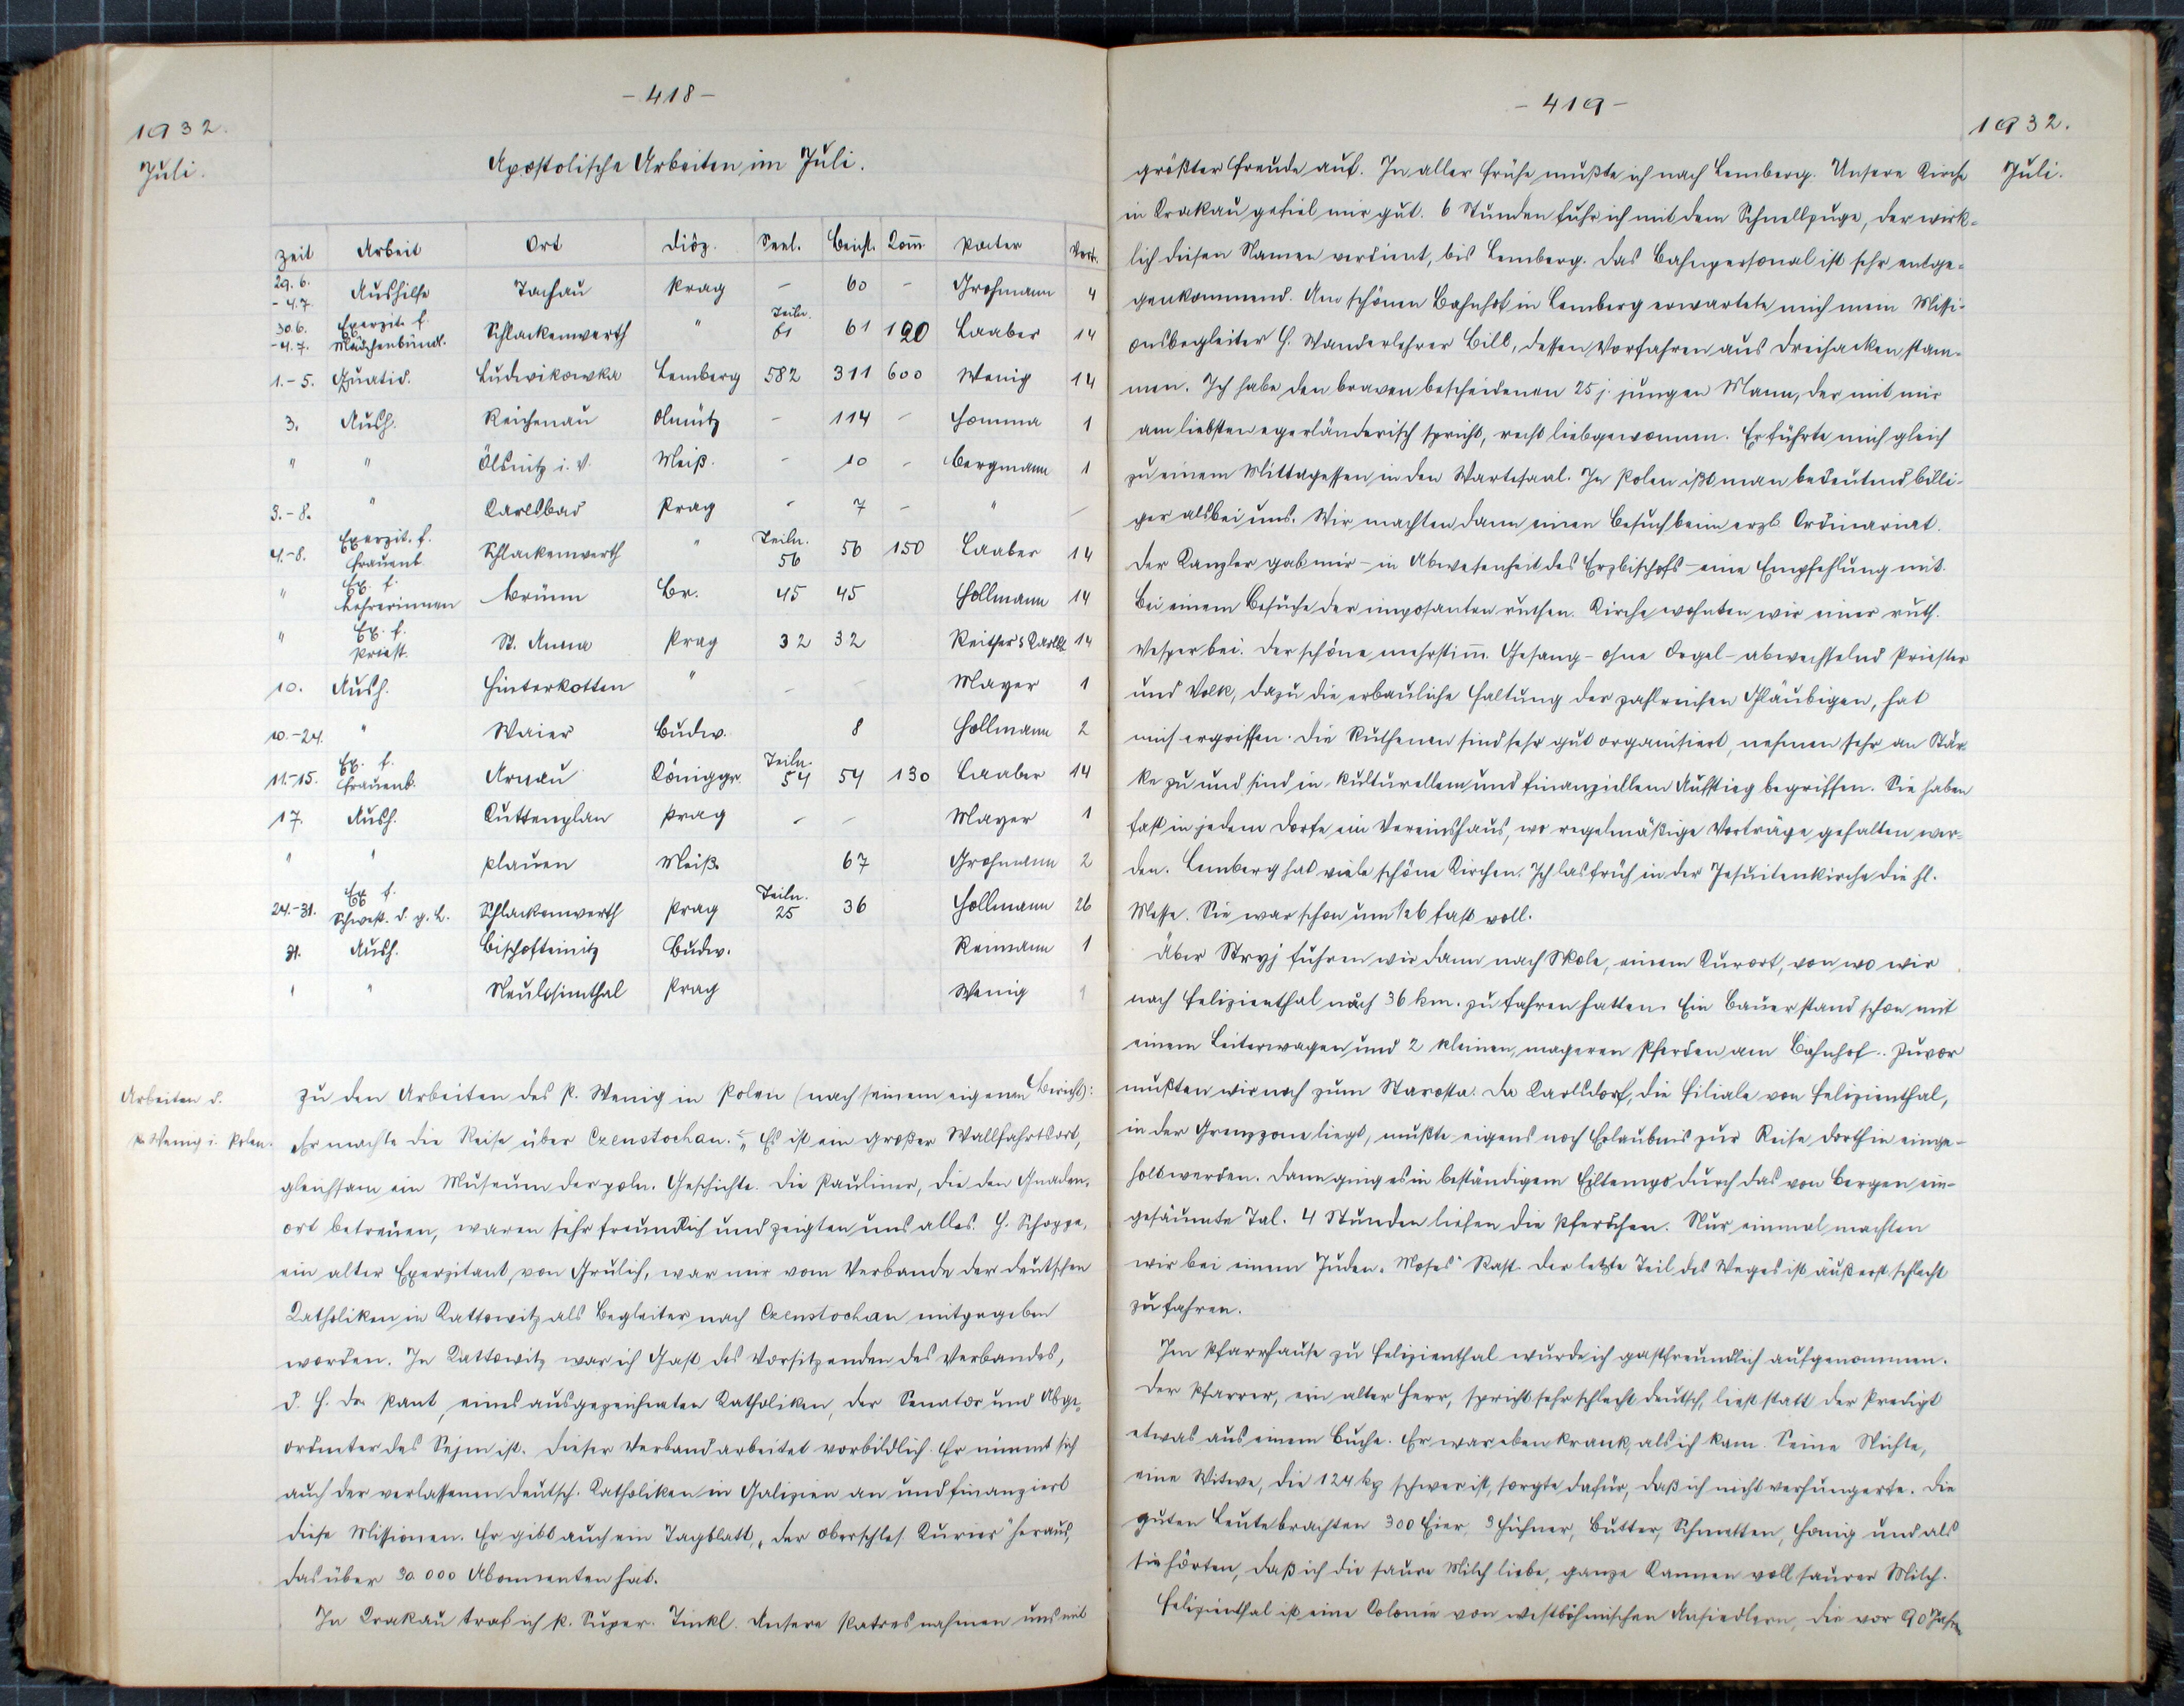 - 418 -
1932.
Juli.
Apostolische Arbeiten im Juli.
Zeit Arbeit Ort Diöz. Seel. Beicht. Kom̄ Pater Vort.
29. 6. - 4.7. Aushilfe Tachau Prag - 60 - Grohmann 4
30.6. - 4.7. Exerzit. f. Mädchenbünd. Schlackenwerth " Teiln. 61 61 120 Laaber 14
1. - 5. Quatid. Ludwikowka Lemberg 582 311 600 Wenig 14
3. Aush. Reichenau Olmütz - 114 - Homma 1
" " Ölsnitz i. V. Meiß. - 10 - Bergmann 1
3. - 8. " Karlsbad Prag - 7 - " -
4. - 8. Exerzit. f. Frauenb. Schlackenwerth " Teiln. 56 56 150 Laaber 14
" Ex. f. Lehrerinnen Brünn Br. 45 45 Hollmann 14
" Ex. f. Priest. St. Anna Prag 32 32 Reither 14
10. Aush. Hinterkotten " - - Mayer 1
10. - 24. " Waier Budw. 8 Hollmann 2
11. - 15. Ex. f. Frauenb. Arnau Königgr. Teiln. 54 54 130 Laaber 14
17. Aush. Kuttenplan Prag - - Mayer 1
" " Plauen Meiß. 67 Grohmann 2
24. - 31. Ex f. Schwest. d. g. L. Schlackenwerth Prag Teiln. 25 36 Hollmann 26
31. Aush. Bischofteinitz Budw. Reimann 1
" " Neulosimthal Prag Wenig 1
Arbeiten d.
P. Wenig i. Polen.
Zu den Arbeiten des P. Wenig in Polen (nach seinem eigenen Bericht):
Er machte die Reise über Czenstochau. „Es ist ein großer Wallfahrtsort,
gleichsam ein Museum der poln. Geschichte. Die Pauliner, die den Gnaden-
ort betreuen, waren sehr freundlich und zeigten uns alles. H. Schoppe,
ein alter Exerzitant von Grulich, war mir vom Verbande der deutschen
Katholiken in Kattowitz als Begleiter nach Czenstochau mitgegeben
worden. In Kattowitz war ich Gast des Vorsitzenden des Verbandes,
d. H. Dr. Pant, eines ausgezeichneten Katholiken, der Senator und Abge-
ordneter des Sejm ist. Dieser Verband arbeitet vorbildlich. Er nimmt sich
auch der verlassenen deutsch. Katholiken in Galizien an und finanziert
diese Missionen. Er gibt auch ein Tagblatt, „der Oberschles. Kurier" heraus,
das über 30 000 Abonnenten hat.
In Krakau traf ich P. Super. Tinkl. Unsere Patres nahmen uns mit
- 419 -
1932.
Juli.
größter Freude auf. In aller Frühe mußte ich nach Lemberg. Unsere Kirche
in Krakau gefiel mir gut. 6 Stunden fuhr ich mit dem Schnellzuge, der wirk-
lich diesen Namen verdient, bis Lemberg. Das Bahnpersonal ist sehr entge-
genkommend. Am schönen Bahnhof in Lemberg erwartete mich mein Missi-
onsbegleiter H. Wanderlehrer Bill, dessen Vorfahren aus Dreihacken stam-
men. Ich habe den braven bescheidenen 25 j. jungen Mann, der mit mir
am liebsten egerländerisch spricht, recht liebgewonnen. Er führte mich gleich
zu einem Mittagessen in den Wartesaal. In Polen ißt man bedeutend billi-
ger als bei uns. Wir machten dann einen Besuch beim erzb. Ordinariat.
Der Kanzler gab mir - in Abwesenheit des Erzbischofs - eine Empfehlung mit.
Bei einem Besuche der imposanten ruthen. Kirche wohnten wir einer ruth.
Vesper bei. Der schöne mehrstim̄. Gesang - ohne Orgel - abwechselnd Priester
und Volk, dazu die erbauliche Haltung der zahlreichen Gläubigen, hat
mich ergriffen. Die Ruthenen sind sehr gut organisiert, nehmen sehr an Stär-
ke zu und sind in kulturellem und finanziellem Aufstieg begriffen. Sie haben
fast in jedem Dorfe ein Vereinshaus, wo regelmäßige Vorträge gehalten wer-
den. Lemberg hat viele schöne Kirchen. Ich las früh in der Jesuitenkirche die hl.
Messe. Sie war schon um 1/2 6 fast voll.
Über Stryj fuhren wir dann nach Skole, einem Kurort, von wo wir
nach Felizienthal noch 36 km. zu fahren hatten. Ein Bauer stand schon mit
einem Leiterwagen und 2 kleinen, mageren Pferden am Bahnhof.. Zuvor
mußten wir noch zum Starosta. Da Karlsdorf, die Filiale von Felizienthal,
in der Grenzzone liegt, mußte eigens noch Erlaubnis zur Reise dorthin einge-
holt werden. Dann ging es in beständigem Eiltempo durch das von Bergen ein-
gesäumte Tal. 4 Stunden liefen die Pferdchen. Nur einmal machten
wir bei einem Juden „Moses" Rast. Der letzte Teil des Weges ist äußerst schlecht
zu fahren.
Im Pfarrhause zu Felizienthal wurde ich gastfreundlich aufgenommen.
Der Pfarrer, ein alter Herr, spricht sehr schlecht deutsch, liest statt der Predigt
etwas aus einem Buche. Er war eben krank, als ich kam. Seine Nichte,
eine Witwe, die 124 kg schwer ist, sorgte dafür, daß ich nicht verhungerte. Die
guten Leute brachten 300 Eier, 3 Hühner, Butter, Schmetten, Honig und als
sie hörten, daß ich die saure Milch liebe, ganze Kannen voll saurer Milch.
Felizienthal ist eine Colonie von westböhmischen Ansiedlern, die vor 90 Jahren